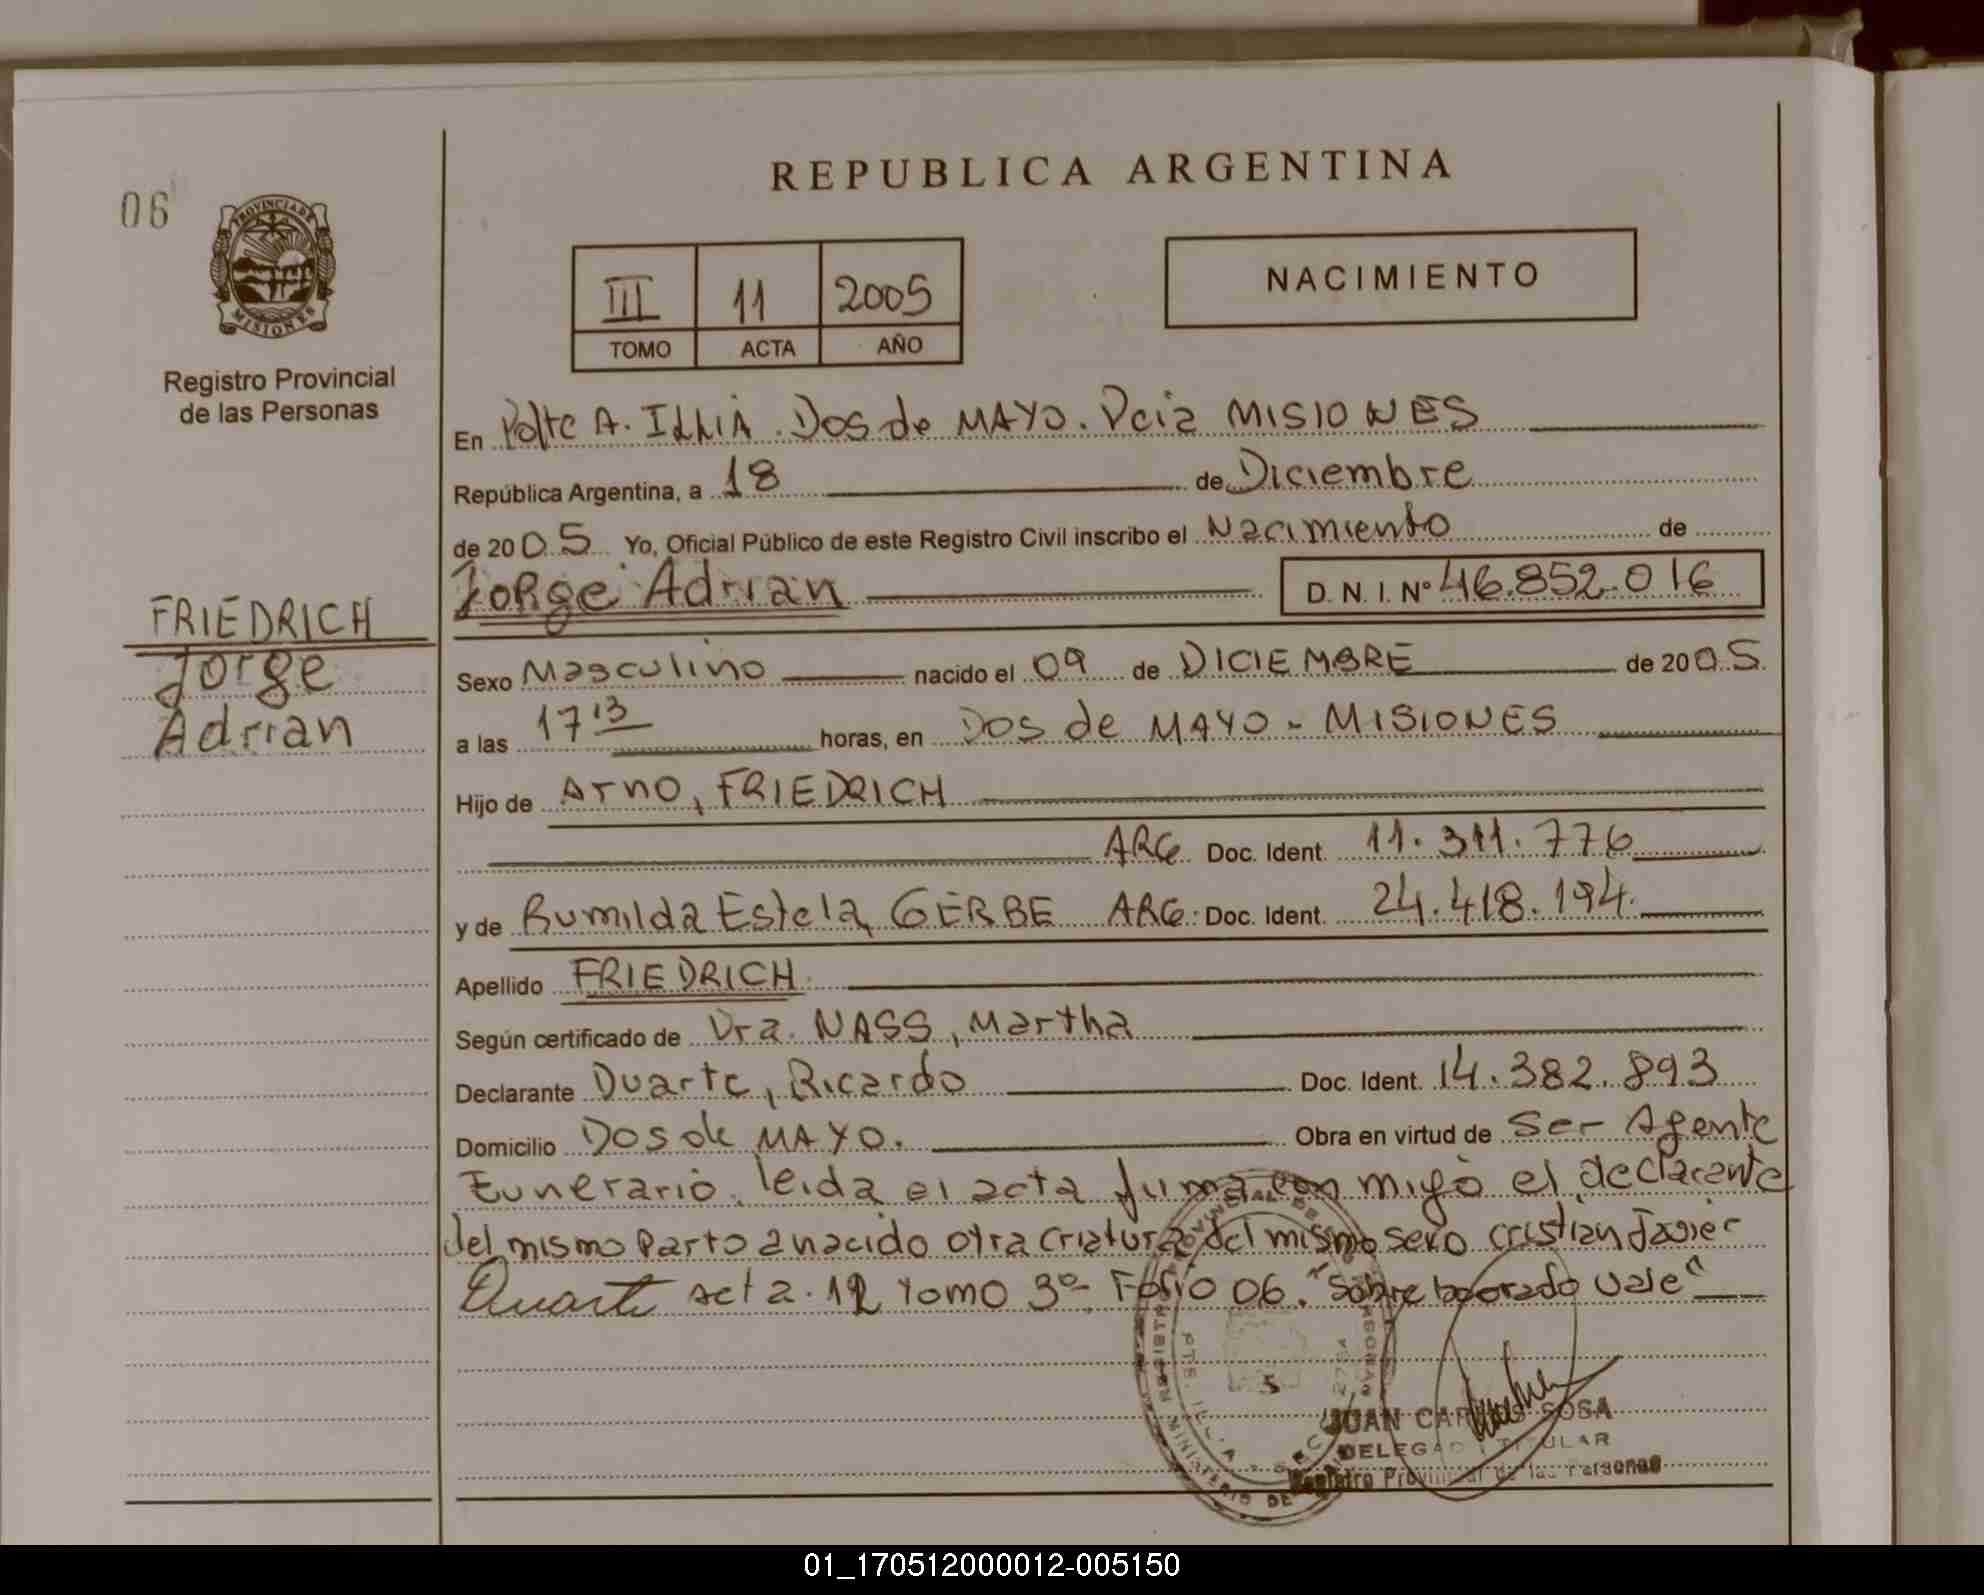 REPUBLICA ARGENTINA
06
PROVINCIA DE
MISIONES
Registro Provincial
de las Personas
III 11 2005
TOMO ACTA AÑO
NACIMIENTO
En Pdte A. ILLIA. Dos de MAYO. Pcia MISIONES
República Argentina, a 18 de Diciembre
de 2005 Yo, Oficial Público de este Registro Civil inscribo el Nacimiento de
Jorge Adrian D. N. I. Nº 46.852.016
FRIEDRICH
Jorge
Adrian
Sexo Masculino nacido el 09 de DICIEMBRE de 2005
a las 17 13 horas, en Dos de MAYO - MISIONES
Hijo de Arno, FRIEDRICH
ARG Doc. Ident. 11.311.776
y de Rumilda Estela GERBE ARG. Doc. Ident. 24.418.194.
Apellido FRIEDRICH
Según certificado de Dra. NASS, Martha
Declarante Duarte, Ricardo Doc. Ident. 14.382.893
Domicilio Dos de MAYO. Obra en virtud de Ser Agente
Funerario. leida el acta firma con migo el declarante
del mismo Parto a nacido otra criatura del mismo sexo cristian Javier
Duarte acta. 12 Tomo 3º Folio 06. "Sobre borrado vale"
JUAN CARLOS SOSA
DELEGADO TITULAR
Registro Provincial de las Personas
01_170512000012-005150